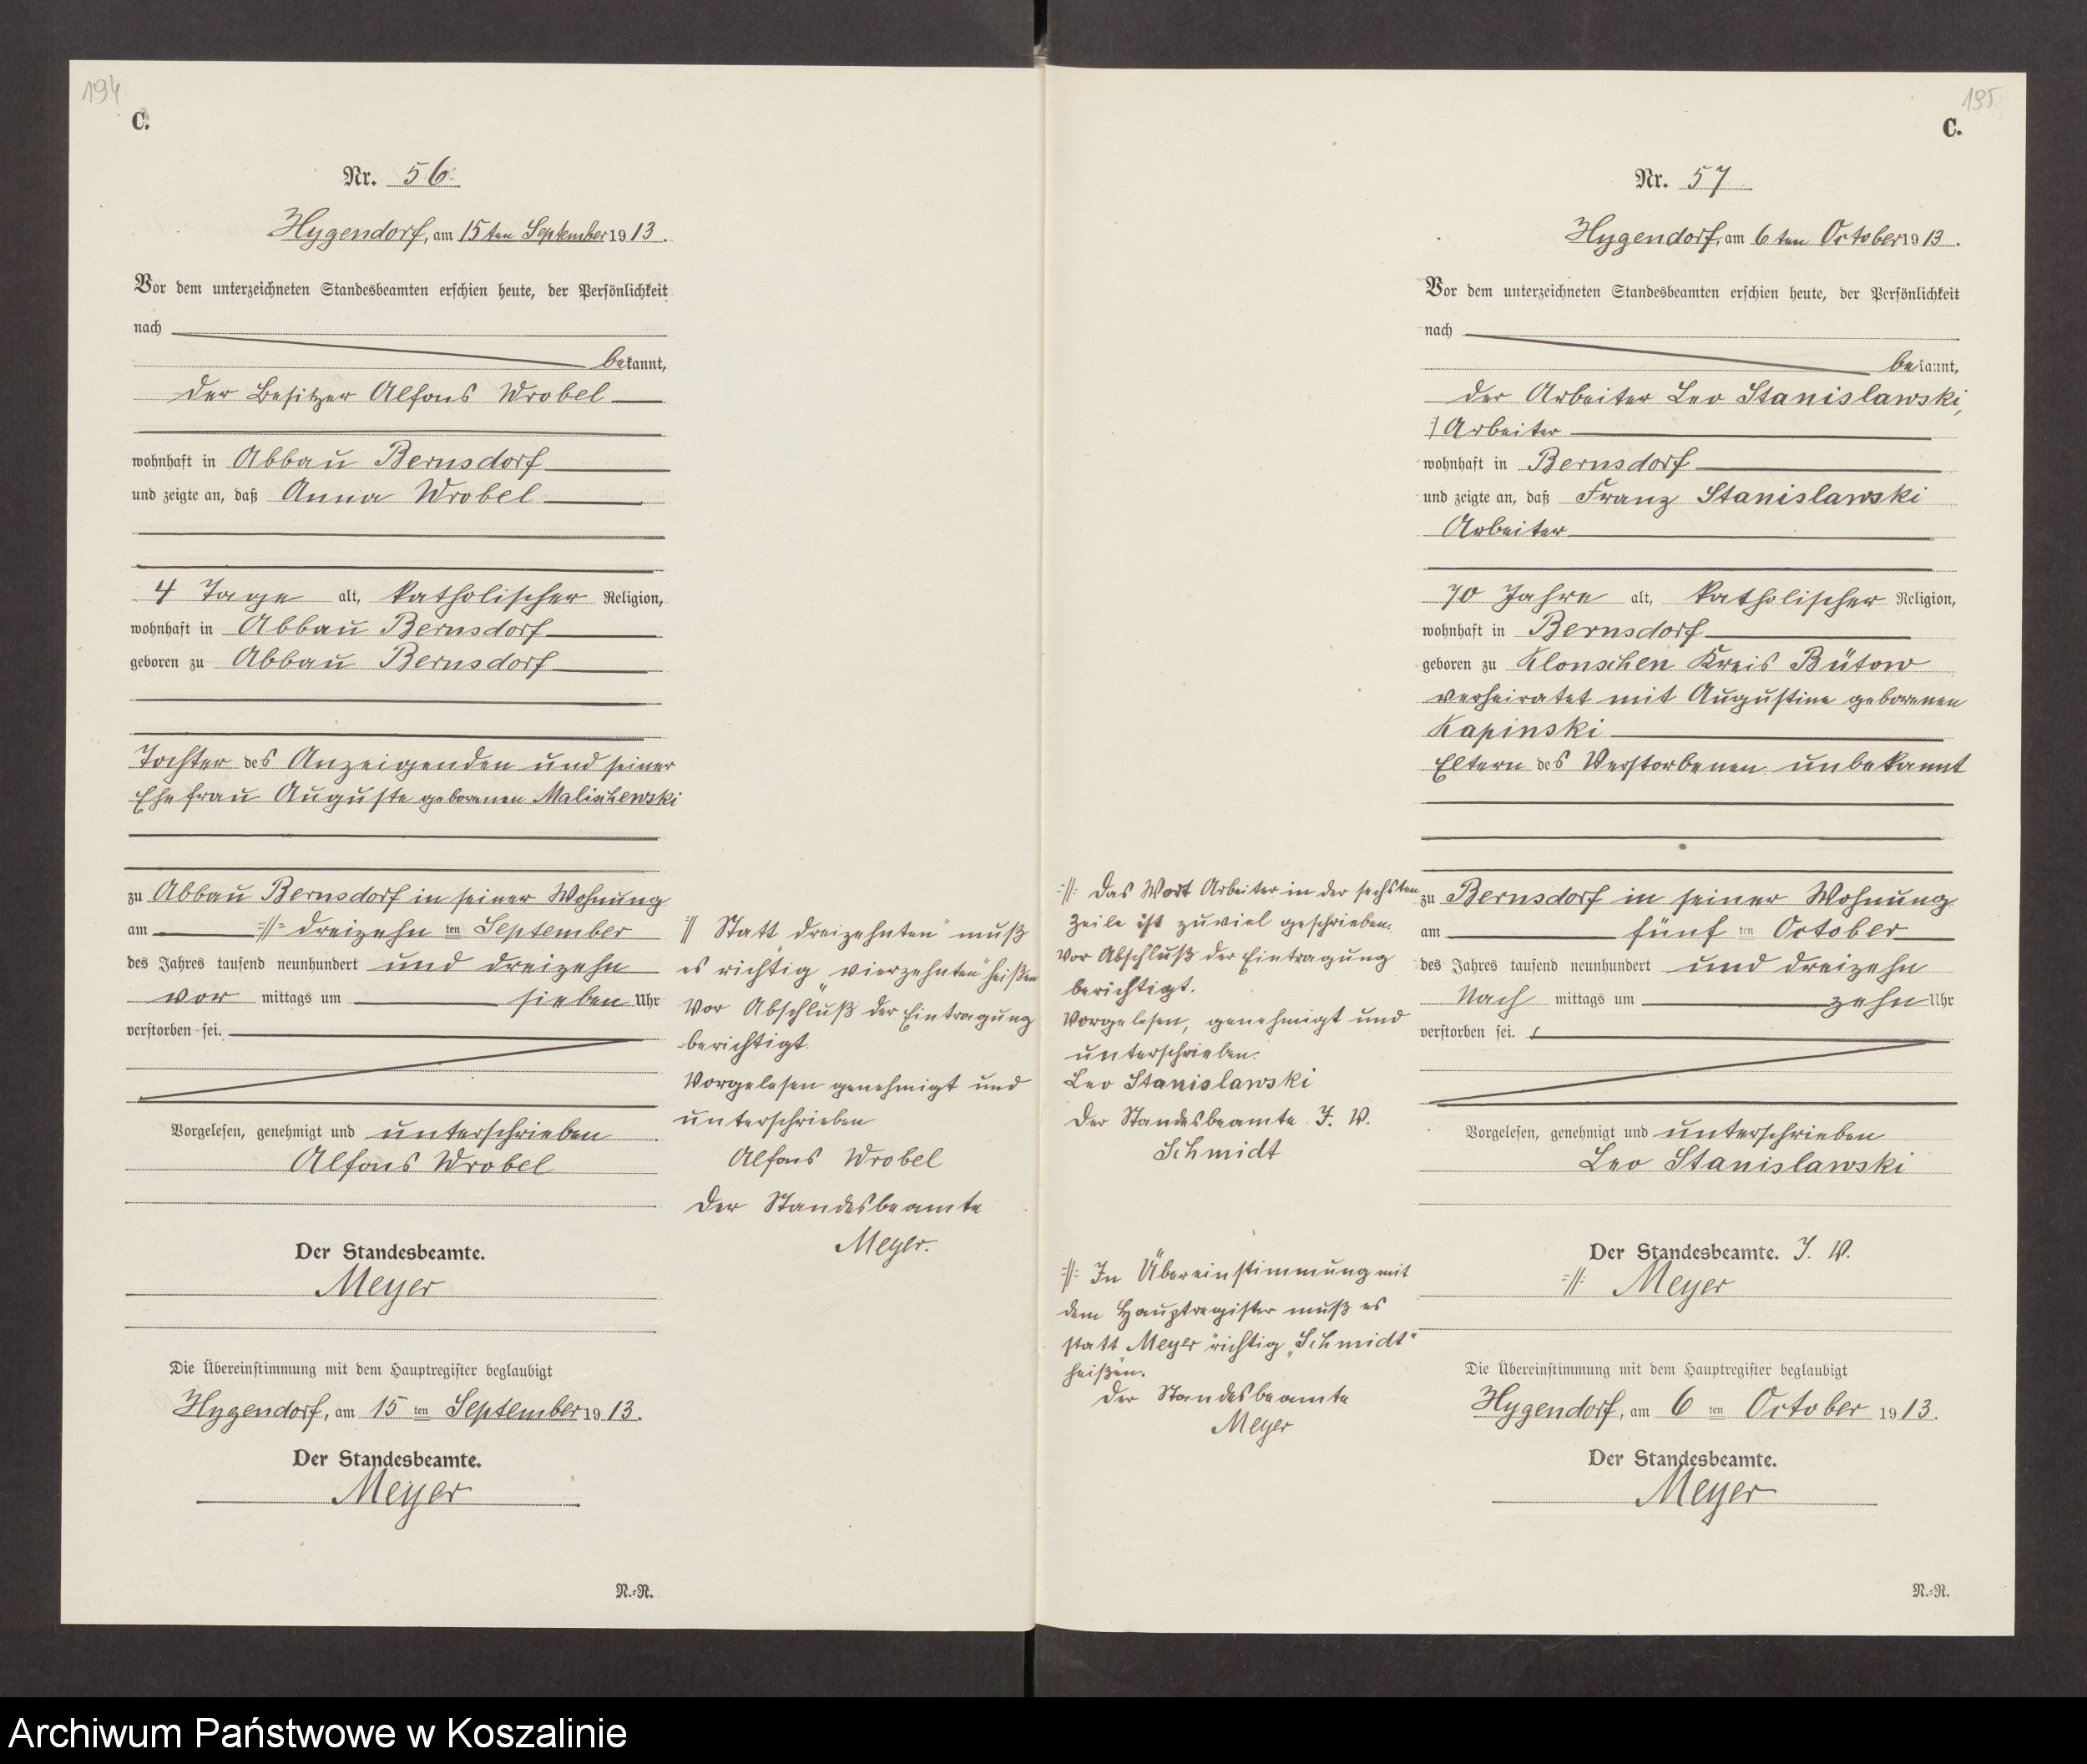 194
C.
Nr. 56
Hygendorf, am 15ten September 1913.
Vor dem unterzeichneten Standesbeamten erschien heute, der Persönlichkeit
nach
bekannt,
der Besitzer Alfons Wrobel
wohnhaft in Abbau Bernsdorf
und zeigte an, daß Anna Wrobel
4 Tage alt, katholischer Religion,
wohnhaft in Abbau Bernsdorf
geboren zu Abbau Bernsdorf
Tochter des Anzeigenden und seiner
Ehefrau Auguste geborenen Malischewski
zu Abbau Bernsdorf in seiner Wohnung
am :/: dreizehn ten September
des Jahres tausend neunhundert und dreizehn
vor mittags um sieben Uhr
verstorben sei.
Vorgelesen, genehmigt und unterschrieben
Alfons Wrobel
Der Standesbeamte.
Meyer
Die Übereinstimmung mit dem Hauptregister beglaubigt
Hygendorf, am 15 ten September 1913.
Der Standesbeamte.
Meyer
N.-R.
// Statt "dreizehnten" muß
es richtig "vierzehnten" heißen
Vor Abschluß der Eintragung
berichtigt.
Vorgelesen genehmigt und
unterschrieben
Alfons Wrobel
Der Standesbeamte
Meyer.
195
C.
Nr. 57
Hygendorf, am 6ten October 1913.
Vor dem unterzeichneten Standesbeamten erschien heute, der Persönlichkeit
nach
bekannt,
der Arbeiter Leo Stanislawski,
:/ Arbeiter
wohnhaft in Bernsdorf
und zeigte an, daß Franz Stanislawski
Arbeiter
70 Jahre alt, katholischer Religion,
wohnhaft in Bernsdorf
geboren zu Klonschen Kreis Bütow
verheiratet mit Augustine geborenen
Kapinski
Eltern des Verstorbenen unbekannt
zu Bernsdorf in seiner Wohnung
am fünf ten October
des Jahres tausend neunhundert und dreizehn
Nach mittags um zehn Uhr
verstorben sei.
Vorgelesen, genehmigt und unterschrieben
Leo Stanislawski
Der Standesbeamte. I. V.
:/: Meyer
Die Übereinstimmung mit dem Hauptregister beglaubigt
Hygendorf, am 6 ten October 1913.
Der Standesbeamte.
Meyer
N.-R.
:/: Das Wort Arbeiter in der sechsten
Zeile ist zuviel geschrieben.
Vor Abschluß der Eintragung
berichtigt.
Vorgelesen, genehmigt und
unterschrieben.
Leo Stanislawski
Der Standesbeamte I. V.
Schmidt
:/: In Übereinstimmung mit
dem Hauptregister muß es
statt Meyer richtig "Schmidt"
heißen.
Der Standesbeamte
Meyer
Archiwum Państwowe w Koszalinie